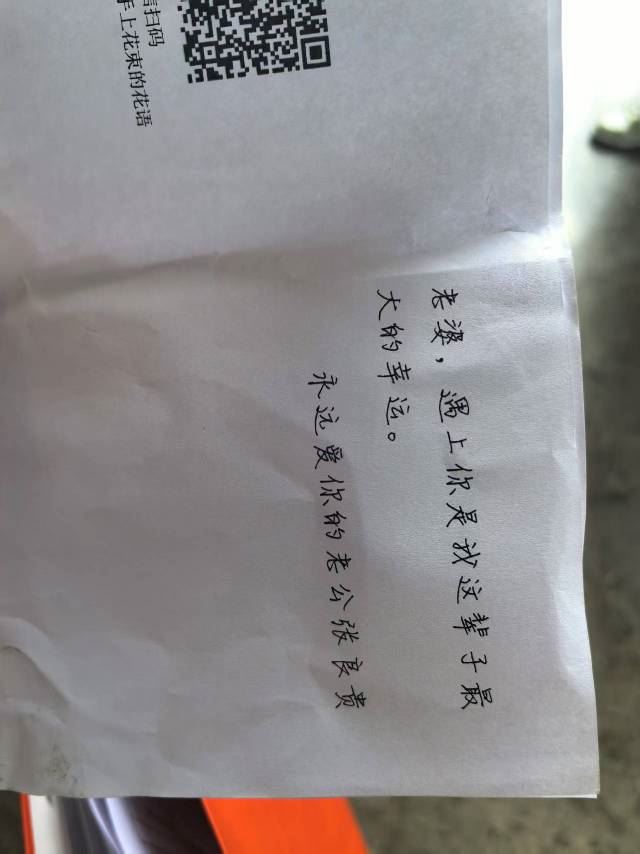 扫码
手上花束的花语
老婆，遇上你是我这辈子最
大的幸运。
永远爱你的老公张良贵